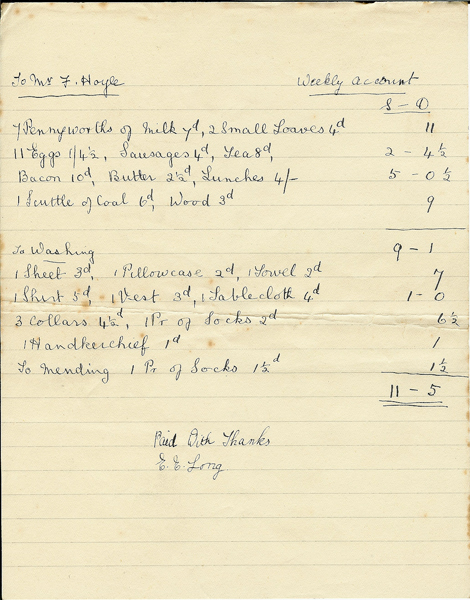 To Mr F. Hoyle Weekly Account
S - D
7 Pennyworths of Milk 7d, 2 Small Loaves 4d 11
11 Eggs 1/4½, Sausages 4d, Tea 8d, 2 - 4½
Bacon 10d, Butter 2½d, Lunches 4/- 5 - 0½
1 Scuttle of Coal 6d, Wood 3d 9
To Washing 9 - 1
1 Sheet 3d, 1 Pillowcase 2d, 1 Towel 2d 7
1 Shirt 5d, 1 Vest 3d, 1 Tablecloth 4d 1 - 0
3 Collars 4½d, 1 Pr of Socks 2d 6½
1 Handkerchief 1d 1
To Mending 1 Pr of Socks 1½d 1½
11 - 5
Paid With Thanks
E. E. Long